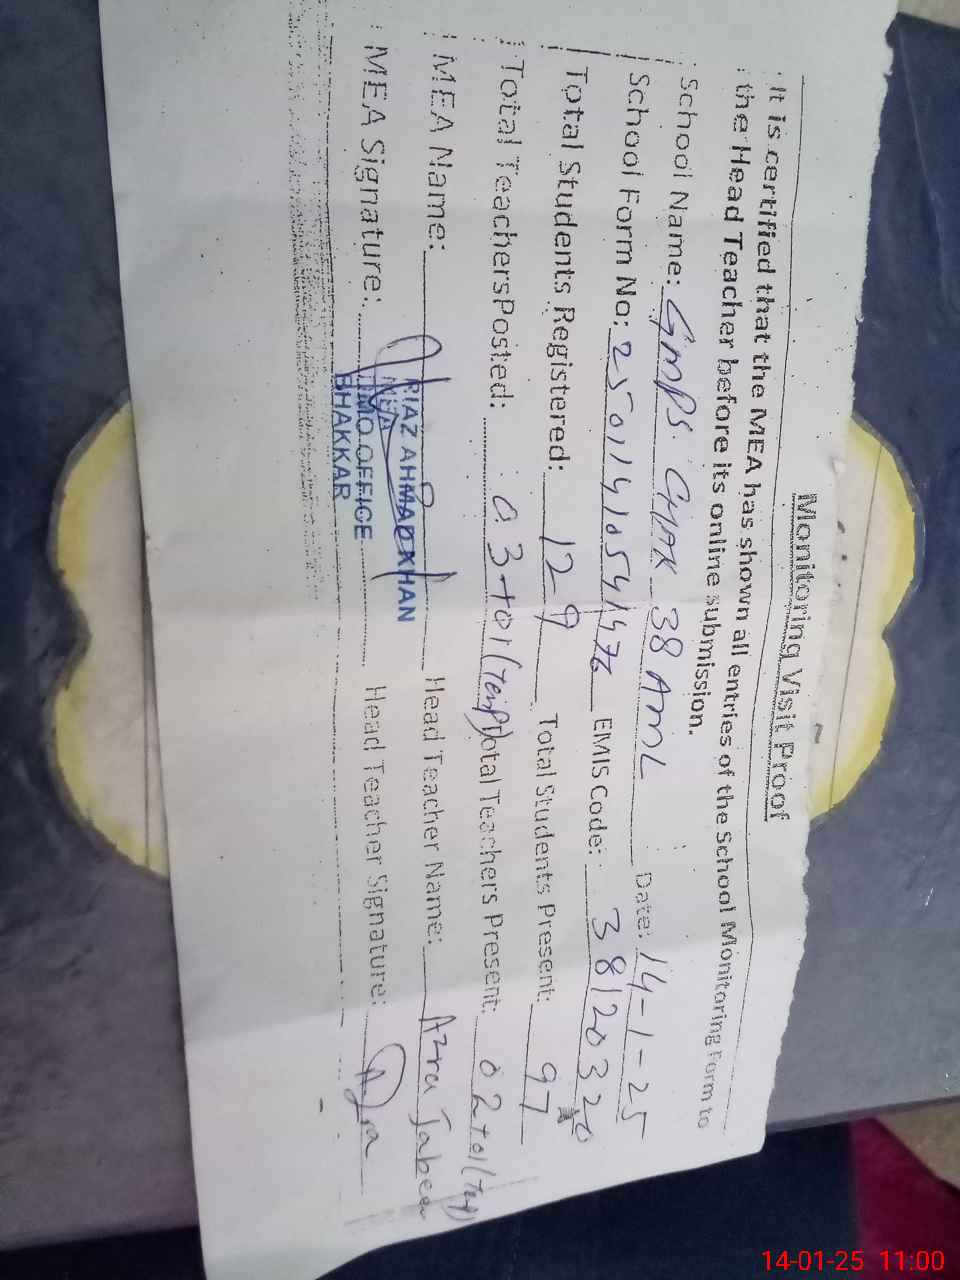 Monitoring Visit Proof
It is certified that the MEA has shown all entries of the School Monitoring Form to
the Head Teacher before its online submission.
School Name: GMPS CHAK 38 AML Date: 14-1-25
School Form No: EMIS Code: 38120320
Total Students Registered: 129 Total Students Present: 97
Total Teachers Posted: 03+01(Temp) Total Teachers Present: 02+01(Temp)
MEA Name: RIAZ AHMAD KHAN Head Teacher Name: Azra Jabeen
MEA
MEA Signature: MO OFFICE Head Teacher Signature: Azra
BHAKKAR
14-01-25 11:00